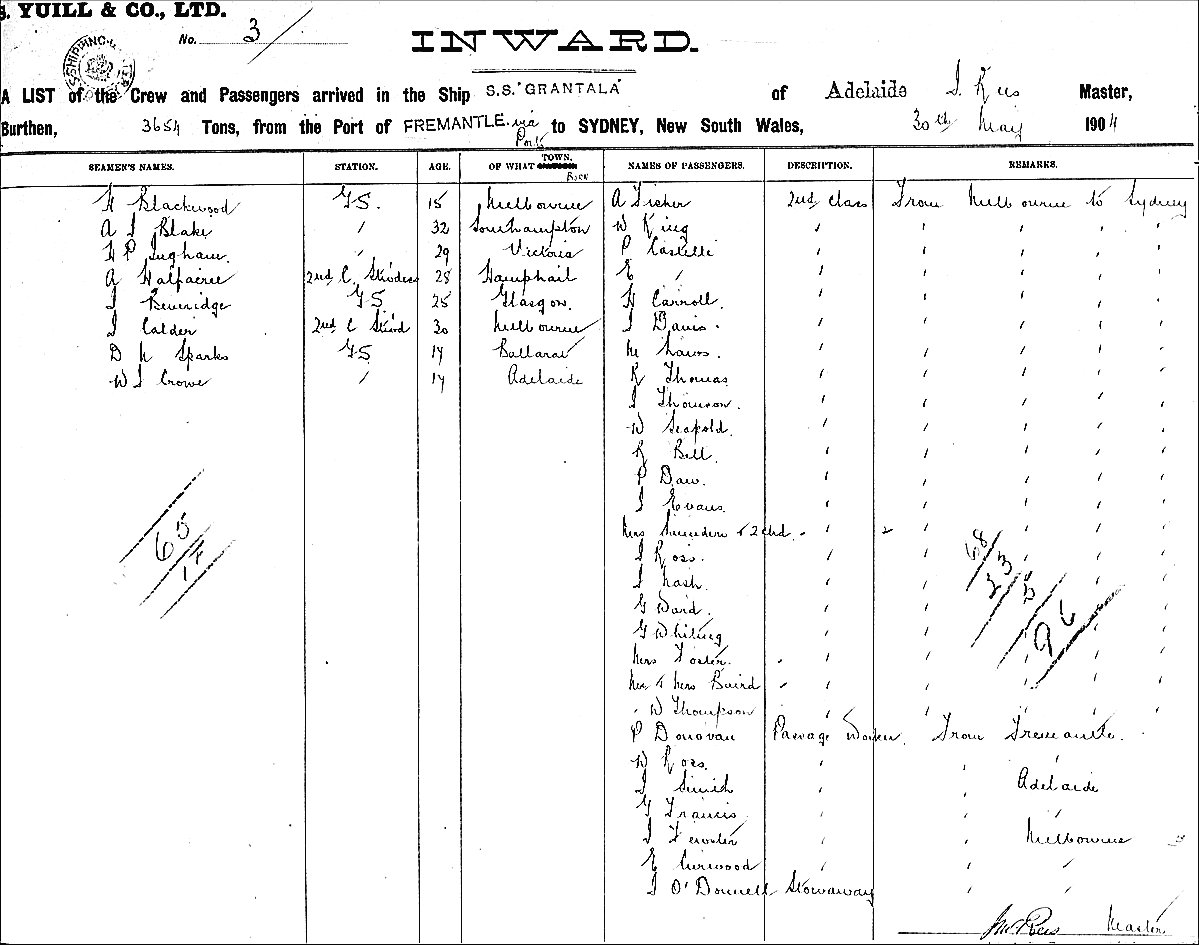 S. YUILL & CO., LTD.
No. 3
INWARD.
A LIST of the Crew and Passengers arrived in the Ship S.S. "GRANTALA" of Adelaide J. Rees Master,
Burthen, 3654 Tons, from the Port of FREMANTLE via Ports to SYDNEY, New South Wales, 30th May 1904
SEAMEN'S NAMES. STATION. AGE. OF WHAT TOWN. Born NAMES OF PASSENGERS. DESCRIPTION. REMARKS.
H Blackwood G.S. 15 Melbourne A Fisher 2nd Class From Melbourne to Sydney
A J Blake " 32 Southampton W King " " " " "
H P Ingham. " 29 Victoria P Castelli " " " " "
A Halfacree 2nd C. Stwdess 28 E " " " " " "
J Beveridge G.S 25 Glasgow. H Carroll. " " " " "
J Calder 2nd C Stwd 30 Melbourne J Davis. " " " " "
D M Sparks G.S 17 Ballarat M Laws. " " " " "
W J Crowe " 17 Adelaide R Thomas " " " " "
J Thomson. " " " " "
W Leopold. " " " " "
R Bell. " " " " "
P Daw. " " " " "
J Evans. " " " " "
Mrs Saunders & 2 chd. " " " " "
J Ross. " " " " "
J Nash. " " " " "
G Ward. " " " " "
G Whiting " " " " "
Mrs Foster. " " " " "
Mr & Mrs Baird " " " " "
" W Thompson " " " " "
P Donovan Passage Worker. From Fremantle.
W Ross. " " "
J Smith " " Adelaide
G Francis " "
J Fewster " " Melbourne
E Curwood " " "
J O'Donnell Stowaway " "
65
17
68
23
5
96
Jno Rees Master